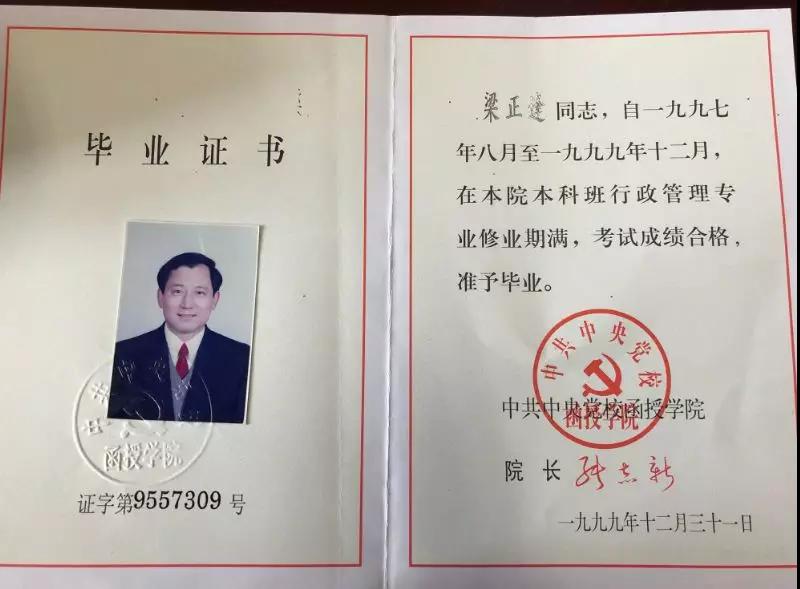 毕业证书
函授学院
证字第9557309号
梁正達同志，自一九九七
年八月至一九九九年十二月，
在本院本科班行政管理专
业修业期满，考试成绩合格，
准予毕业。
中共中央党校
函授学院
中共中央党校函授学院
院长 张志新
一九九九年十二月三十一日